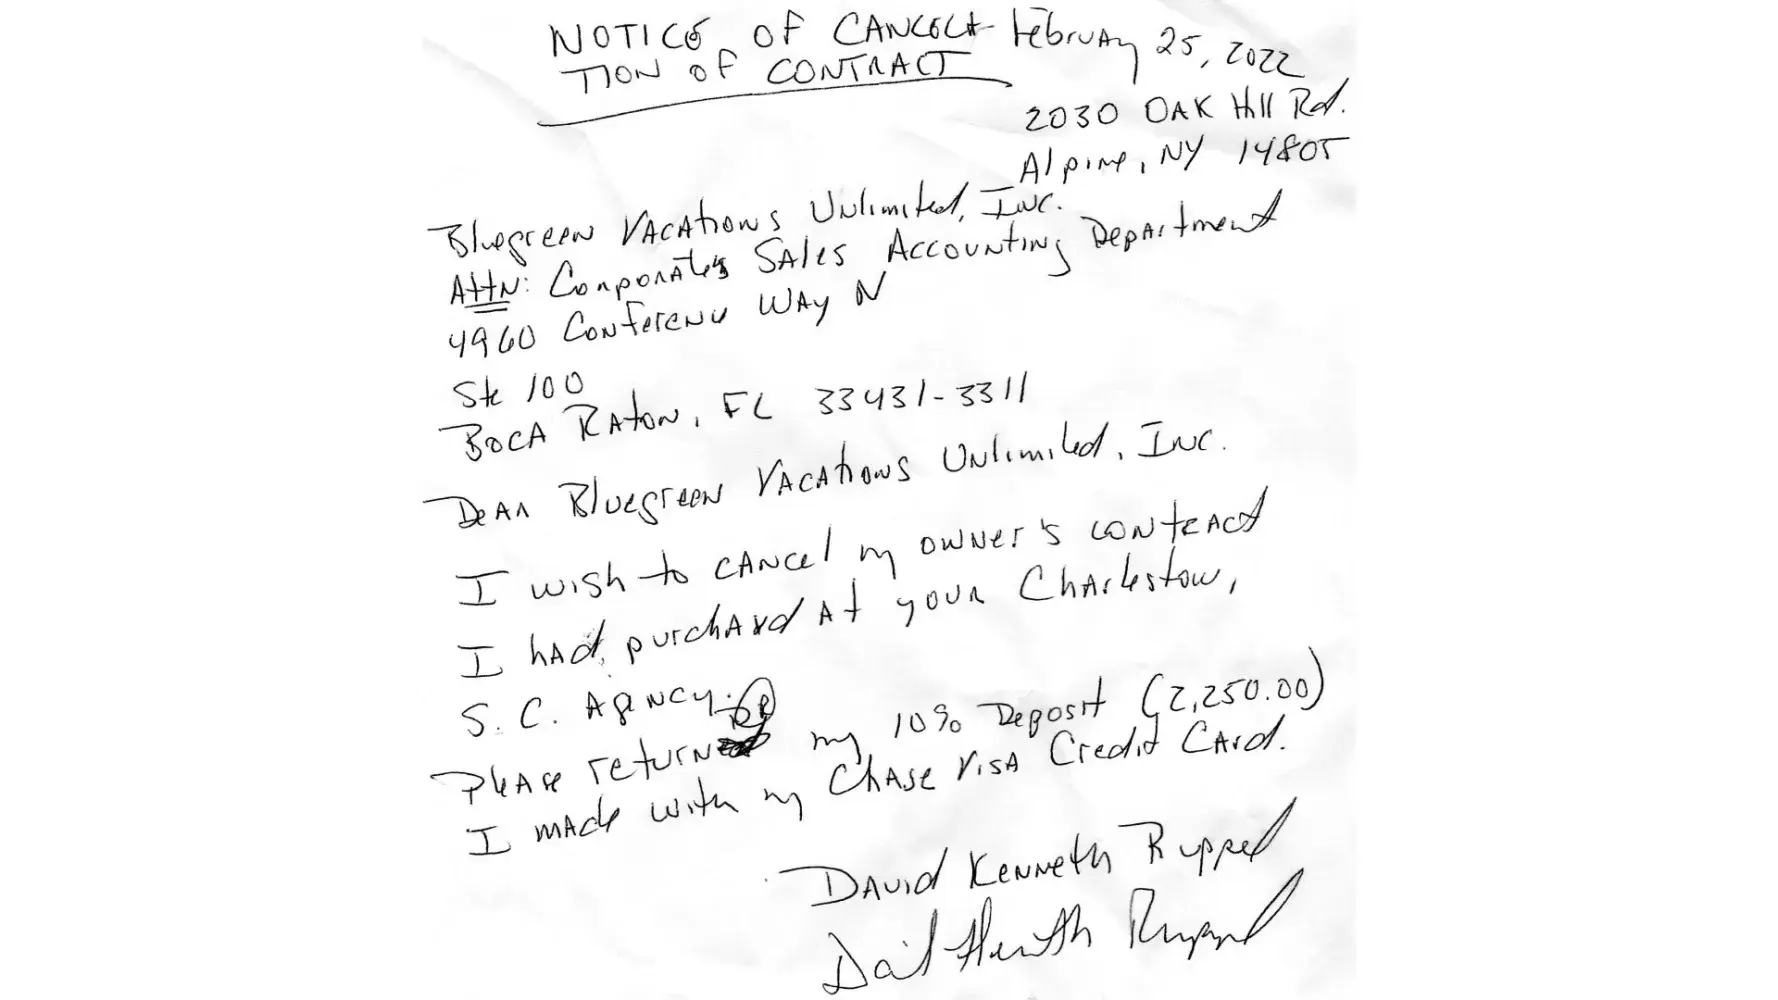 NOTICE OF CANCELA-
TION OF CONTRACT
February 25, 2022
2030 OAK Hill Rd.
Alpine, NY 14805
Bluegreen Vacations Unlimited, Inc.
Attn: Corporate Sales Accounting Department
4960 Conference Way N
Ste 100
Boca Raton, FL 33431-3311
Dear Bluegreen Vacations Unlimited, Inc.
I wish to cancel my owner's contract
I had purchased at your Charleston,
S.C. Agency.
Please return my 10% Deposit (2,250.00)
I made with my Chase Visa Credit Card.
David Kenneth Ruppel
David Kenneth Ruppel